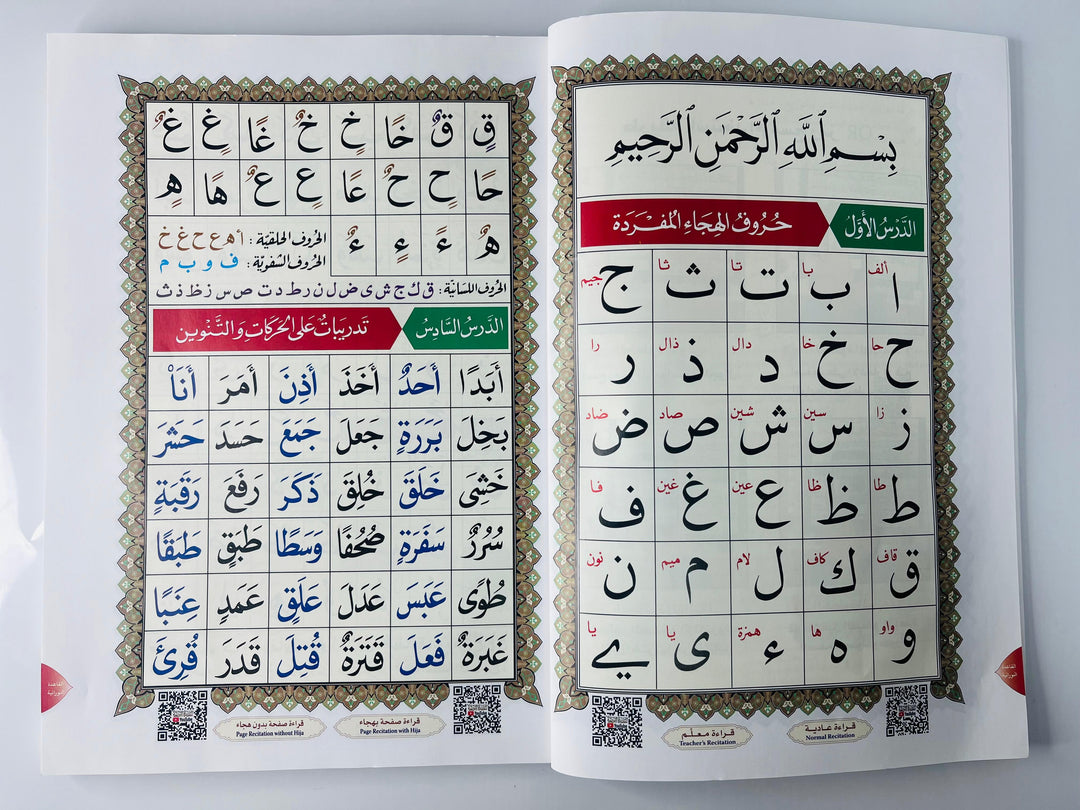 بِسْمِ ٱللَّهِ ٱلرَّحْمَٰنِ ٱلرَّحِيمِ
الدَّرْسُ الأَوَّلُ حُرُوفُ الهِجَاءِ المُفْرَدَة
ا ألف ب با ت تا ث ثا ج جيم
ح حا خ خا د دال ذ ذال ر را
ز زا س سين ش شين ص صاد ض ضاد
ط طا ظ ظا ع عين غ غين ف فا
ق قاف ك كاف ل لام م ميم ن نون
و واو ه ها ء همزة ى يا ے يا
قراءة عادية
Normal Recitation
قراءة معلم
Teacher's Recitation
القاعدة
النورانية
قٍ قٌ خًا خٍ خٌ غًا غٍ غٌ
حًا حٍ حٌ عًا عٍ عٌ هًا هٍ
هٌ ءً ءٍ ءٌ
الحُروف الحلقيّة : أ ه ع ح غ خ
الحُروف الشفويّة : ف و ب م
الحُروف اللسانيّة: ق ك ج ش ى ض ل ن ر ط د ت ص س ز ظ ذ ث
الدَّرْسُ السَّادِسُ تَدرِيبَاتٌ عَلَى الحَرَكَاتِ وَالتَّنْوِين
أَبَدًا أَحَدٌ أَخَذَ أَذِنَ أَمَرَ أَنَا۠
بَخِلَ بَرَرَةٍ جَعَلَ جَمَعَ حَسَدَ حَشَرَ
خَشِىَ خَلَقَ خُلِقَ ذَكَرَ رَفَعَ رَقَبَةٍ
سُرُرٌ سَفَرَةٍ صُحُفًا وَسَطًا طَبَقٍ طَبَقًا
طُوًى عَبَسَ عَدَلَ عَلَقٍ عَمَدٍ عِنَبًا
غَبَرَةٌ فَعَلَ قَتَرَةٌ قُتِلَ قَدَرَ قُرِئَ
قراءة صفحة بهجاء
Page Recitation with Hija
قراءة صفحة بدون هجاء
Page Recitation without Hija
القاعدة
النورانية